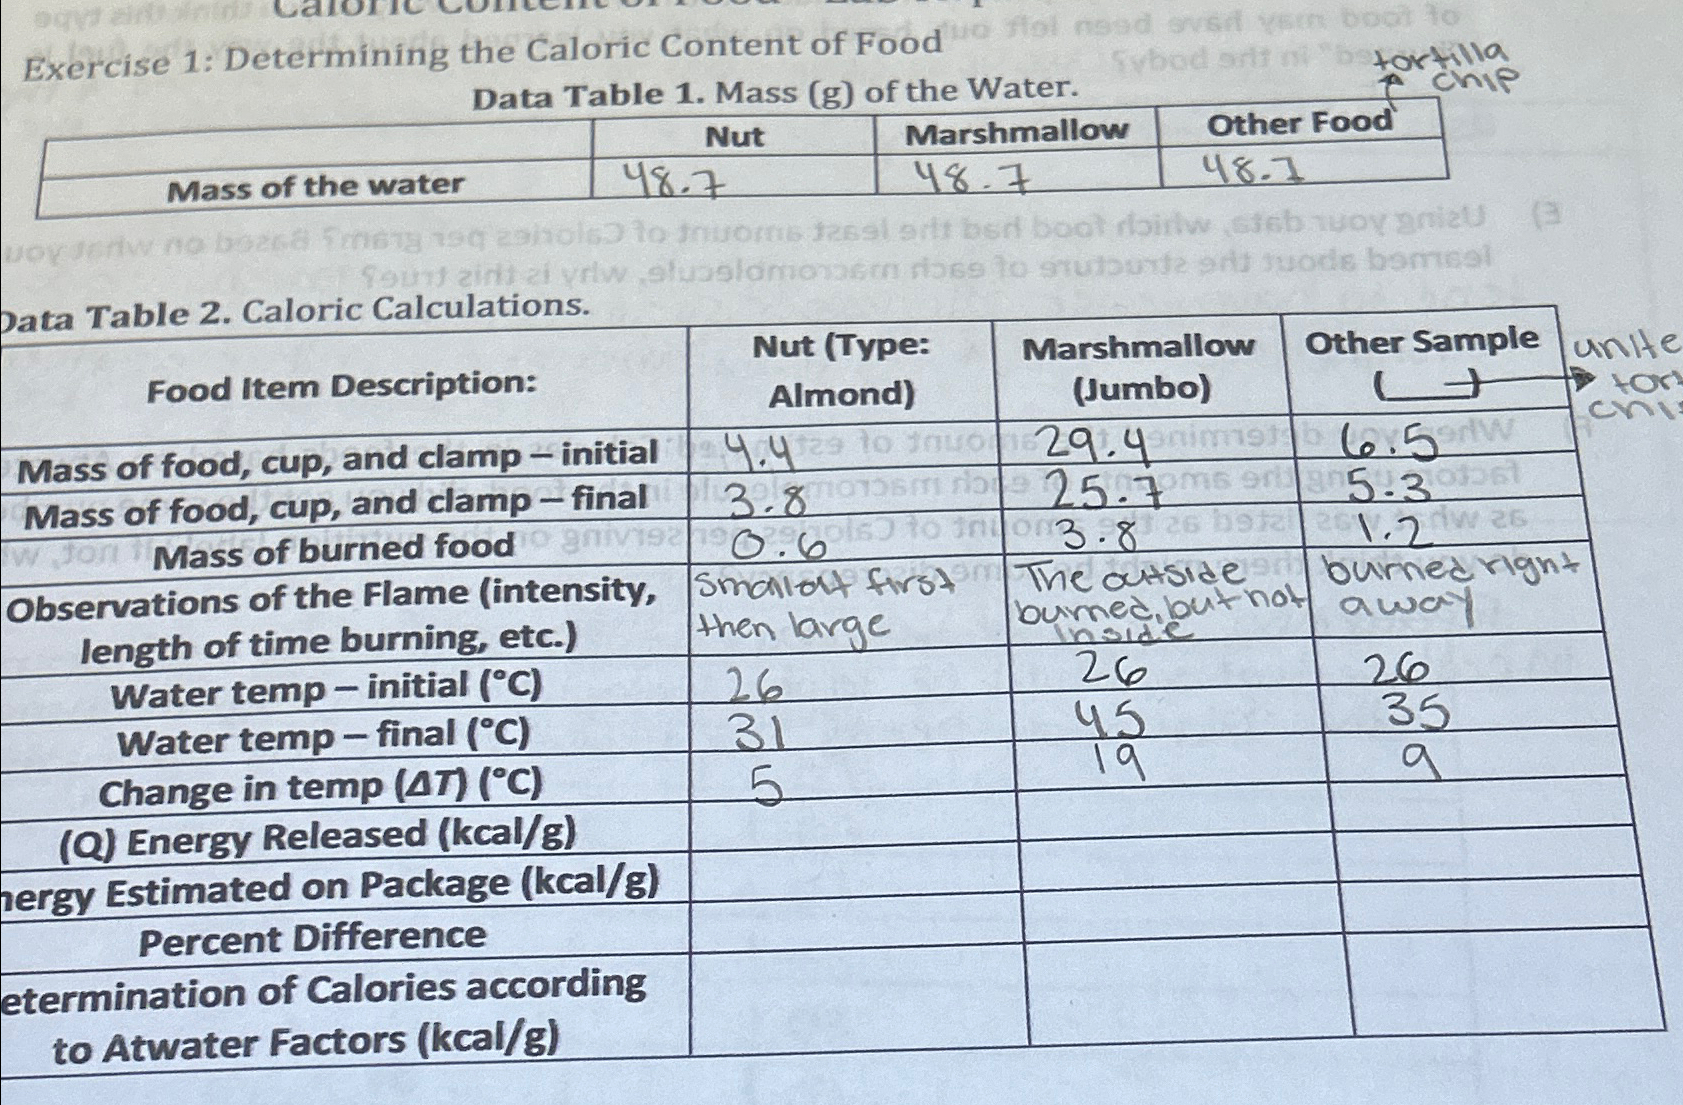 Caloric Content of Food
Exercise 1: Determining the Caloric Content of Food
tortilla
chip
Data Table 1. Mass (g) of the Water.
Nut Marshmallow Other Food
Mass of the water 48.7 48.7 48.7
Data Table 2. Caloric Calculations.
Food Item Description: Nut (Type: Almond) Marshmallow (Jumbo) Other Sample ( )
Mass of food, cup, and clamp – initial 4.4 29.4 6.5
Mass of food, cup, and clamp – final 3.8 25.7 5.3
Mass of burned food 0.6 3.8 1.2
Observations of the Flame (intensity, small at first The outside burned right
length of time burning, etc.) then large burned, but not away
inside
Water temp – initial (°C) 26 26 26
Water temp – final (°C) 31 45 35
Change in temp (ΔT) (°C) 5 19 9
(Q) Energy Released (kcal/g)
nergy Estimated on Package (kcal/g)
Percent Difference
etermination of Calories according
to Atwater Factors (kcal/g)